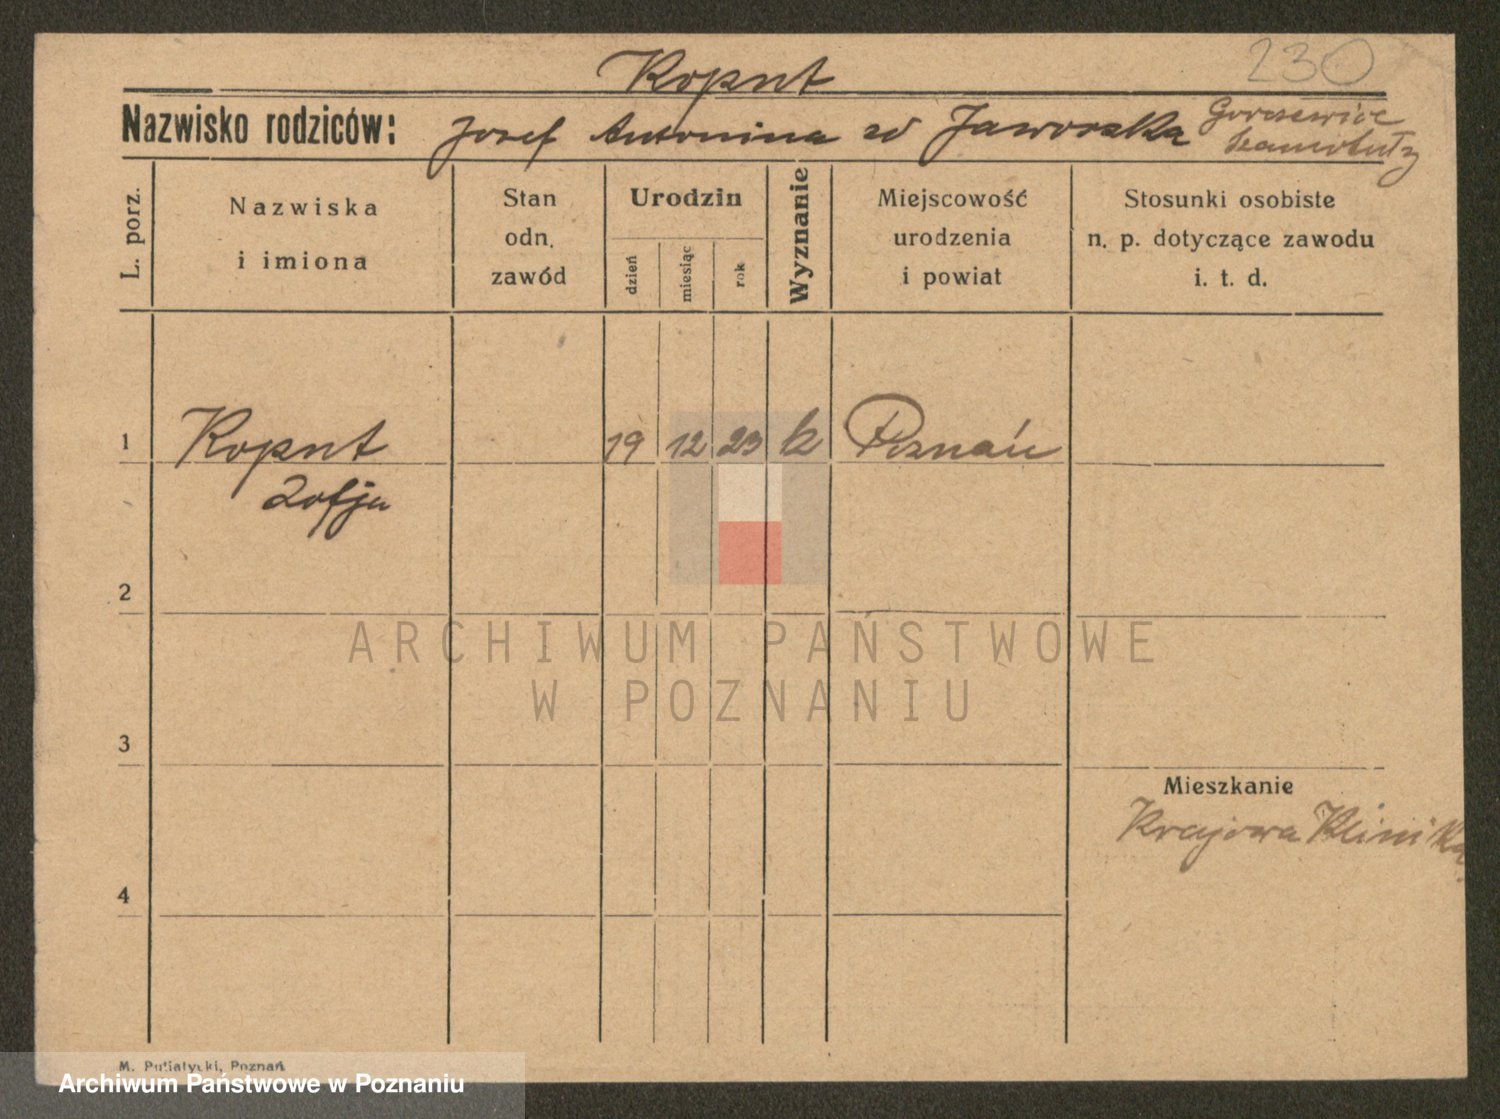 230
Kopnt
Nazwisko rodziców: Josef Antonina zd Jaworska
Szamotuły
L. porz.
Nazwiska
i imiona
Stan
odn.
zawód
Urodzin
dzień
miesiąc
rok
Wyznanie
Miejscowość
urodzenia
i powiat
Stosunki osobiste
n. p. dotyczące zawodu
i. t. d.
1 Kopnt 19 12 23 k Poznań
Zofja
2
ARCHIWUM PAŃSTWOWE
W POZNANIU
3
Mieszkanie
Krajowa Klinika
4
M. Putiatycki, Poznań
Archiwum Państwowe w Poznaniu